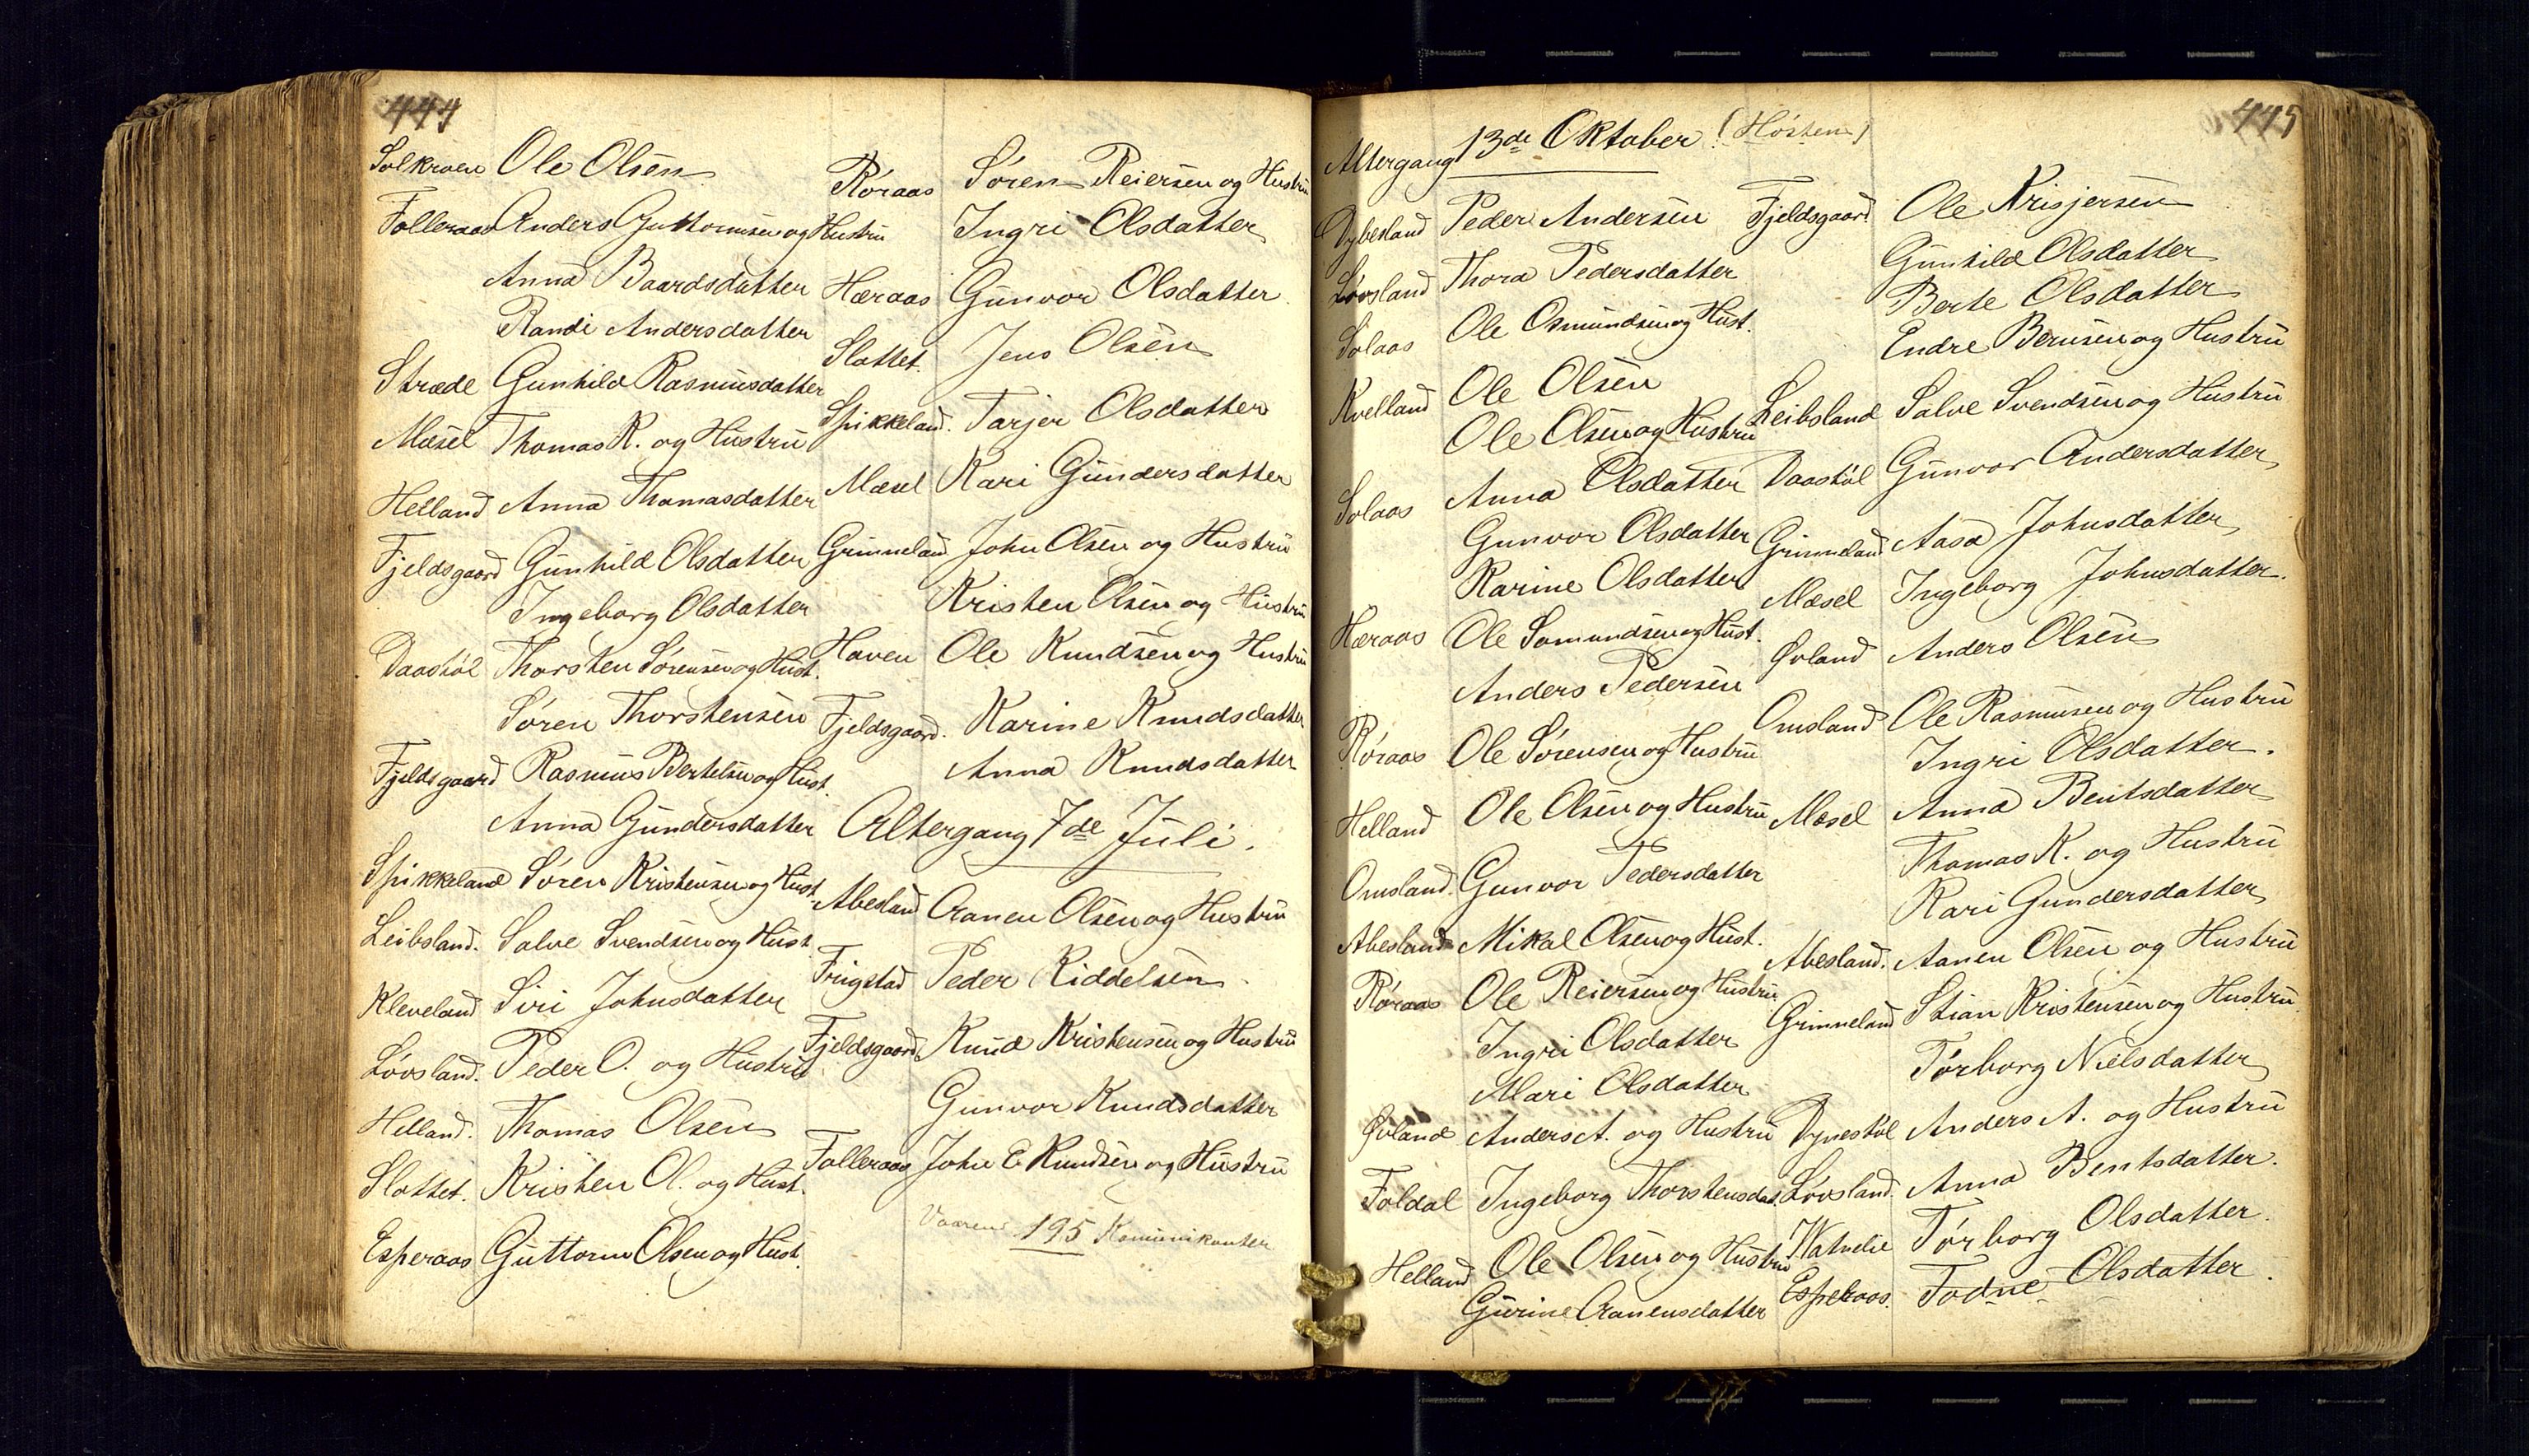 444
Solkroen Ole Olsen
Folleraas Anders Guttormsen og Hustru
Anna Baardsdatter
Randi Andersdatter
Stræde Gunhild Rasmusdatter
Mæsel Thomas K. og Hustru
Helland Anna Thomasdatter
Fjeldsgaard Gunhild Olsdatter
Ingeborg Olsdatter
Daastøl Thorsten Sørensen og Hust.
Søren Thorstensen
Fjeldsgaard Rasmus Bertelsen og Hust.
Anna Gundersdatter
Spikkeland Søren Kristensen og Hust.
Leibsland. Salve Svendsen og Hust.
Kleveland Siri Johnsdatter
Løvsland. Peder O. og Hustru
Helland. Thomas Olsen
Slottet. Kristen O. og Hust.
Esperaas Guttorm Olsen og Hust.
Røraas Søren Reiersen og Hustru
Ingri Olsdatter
Hæraas Gunvor Olsdatter
Slottet. Jens Olsen
Spikkeland. Tarjer Olsdatter
Mæsel Kari Gundersdatter
Grimneland John Olsen og Hustru
Kristen Olsen og Hustru
Haven Ole Knudsen og Hustru
Fjeldsgaard. Karine Knudsdatter
Anna Knudsdatter
Altergang 7de Juli.
Abesland Aanen Olsen og Hustru
Frigstad Peder Riddelsen
Fjeldsgaard Knud Kristensen og Hustru
Gunvor Knudsdatter
Folleraas John E Knudsen og Hustru
Vaaren 195 Komunikanter
445
Altergang 13de Oktober (Høsten)
Dybesland Peder Andersen
Løvsland Thora Pedersdatter
Solaas Ole Osmundsen og Hust.
Kvelland Ole Olsen
Ole Olsen og Hustru
Solaas Anna Olsdatter
Gunvor Olsdatter
Karine Olsdatter
Hæraas Ole Samundsen og Hust.
Anders Pedersen
Røraas Ole Sørensen og Hustru
Helland Ole Olsen og Hustru
Omsland. Gunvor Pedersdatter
Abesland Mikal Olsen og Hust.
Røraas Ole Reiersen og Hustru
Ingri Olsdatter
Mari Olsdatter
Øvland Anders A. og Hustru
Foldal Ingeborg Thorstensdat.
Helland Ole Olsen og Hustru
Gurine Aanensdatter
Fjeldsgaard. Ole Krisjersen
Gunhild Olsdatter
Berte Olsdatter
Endre Bernsen og Hustru
Leibsland Salve Svendsen og Hustru
Daastøl Gunvor Andersdatter
Grimneland Aasa Johnsdatter
Mæsel Ingeborg Johnsdatter.
Øvland Anders Olsen
Omsland Ole Rasmusen og Hustru
Ingri Olsdatter.
Mæsel Anna Bentsdatter
Thomas K. og Hustru
Kari Gundersdatter
Abesland. Aanen Olsen og Hustru
Grimneland Stian Kristensen og Hustru
Tørborg Nielsdatter
Dynestøl Anders A. og Hustru
Løvsland. Anna Bentsdatter.
Watnelie Tørborg Olsdatter.
Esperaas. Todne Olsdatter.